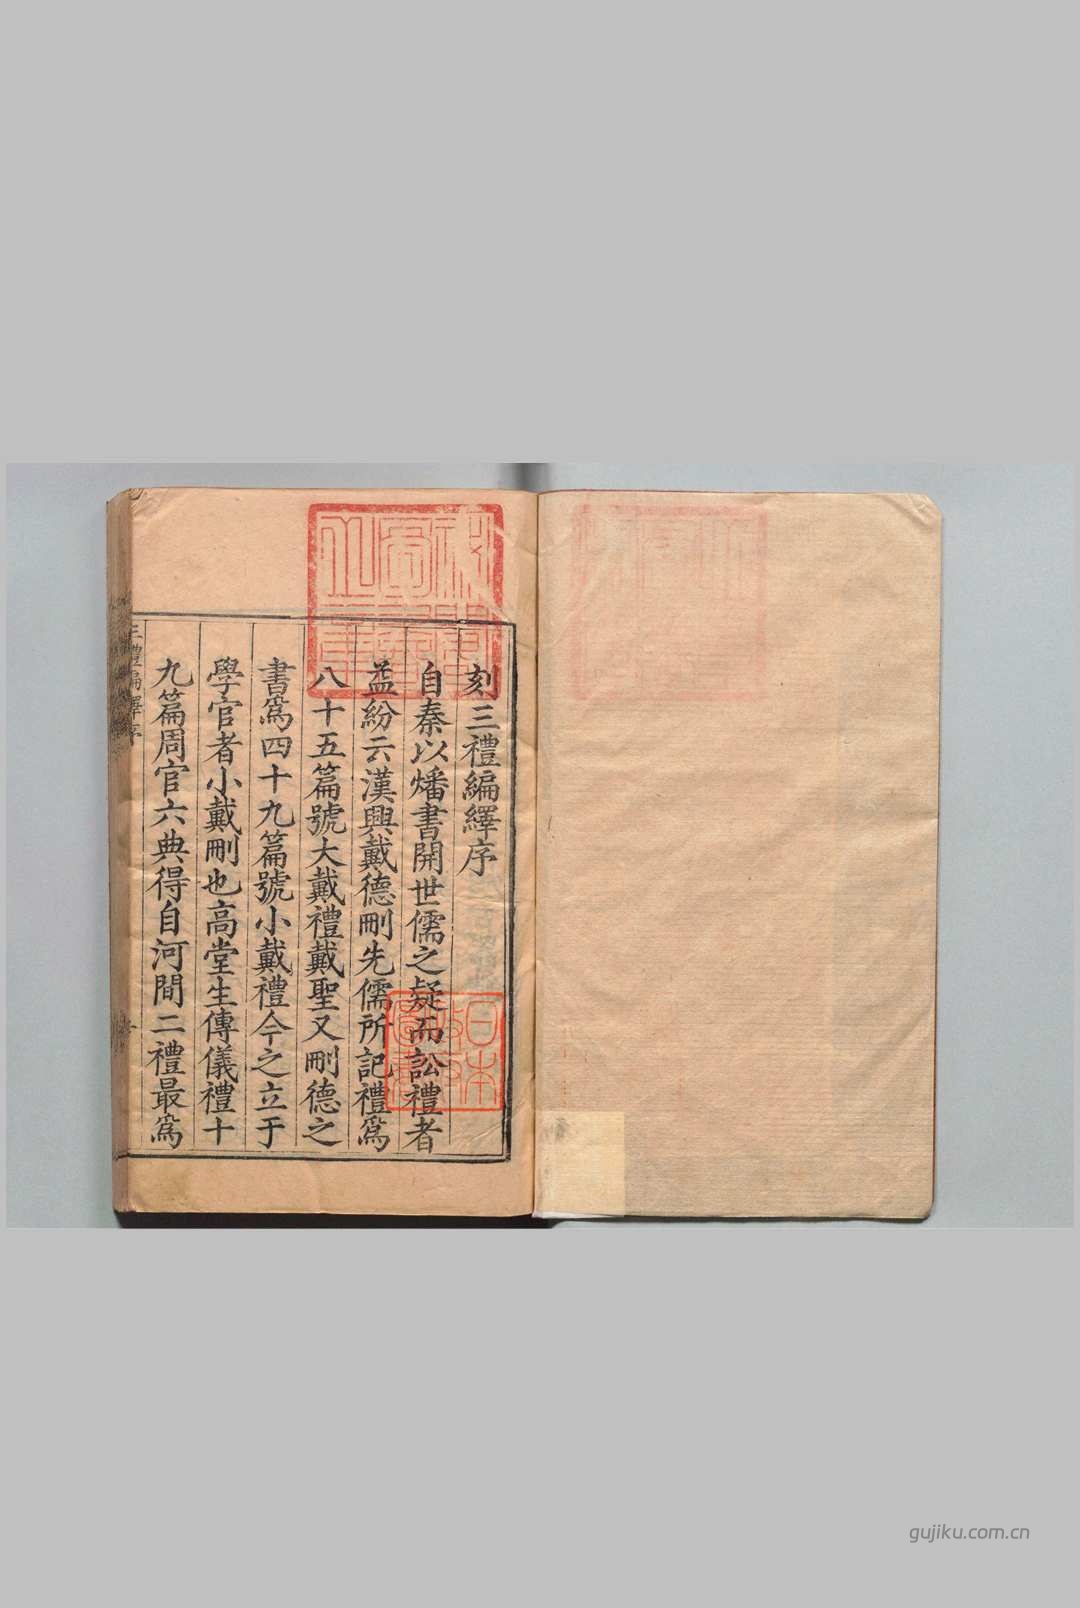 刻三禮編繹序
自秦以燔書開世儒之疑而訟禮者
益紛云漢興戴德刪先儒所記禮爲
八十五篇號大戴禮戴聖又刪德之
書爲四十九篇號小戴禮今之立于
學官者小戴刪也高堂生傳儀禮十
九篇周官六典得自河間二禮最爲
三禮編繹序
日本
政府
圖書
gujiku.com.cn